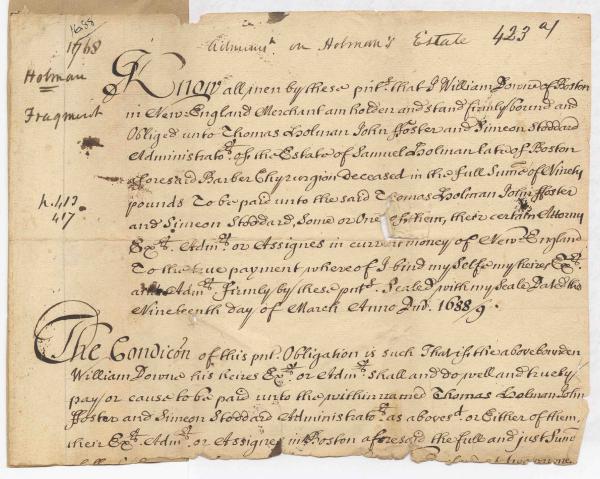 1688
1768
Holman
Fragment
h. 413
417
Adminisr on Holman's Estate 423 a/
Know all men by these prsts. that I William Downe of Boston
in New England Merchant am holden and stand firmly bound and
Obliged unto Thomas Holman John ffoster and Simeon Stoddard
Administrators. of the Estate of Samuel Holman late of Boston
aforesaid Barber Chyrurgion deceased in the full Sume of Ninety
pounds To be paid unto the said Thomas Holman John ffoster
and Simeon Stoddard, Some or One of them, their certain Attorny
Exrs. Admrs. or Assignes in current money of New England
To the true payment whereof I bind my Selfe my heires Exrs.
and Admrs. firmly by these pnts. Sealed with my Seale Dated this
Nineteenth day of March Anno Dni. 1688/9.
The Condicon of this pnt. Obligation is such That if the above bowden
William Downe his heires Exrs. or Admrs. shall and do well and truely
pay or cause to be paid unto the within named Thomas Holman John
ffoster and Simeon Stoddard Administratrs. as abovesd. or Either of them,
their Exrs. Admrs. or Assignes in Boston aforesaid the full and just Sume